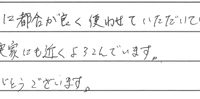 に都合が良く使わせていただいてい
実家にも近くよろこんでいます。
がとうございます。